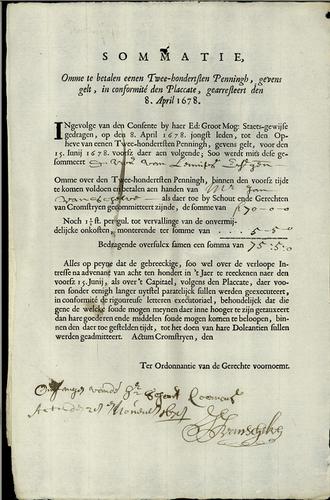 SOMMATIE,
Omme te betalen eenen Twee-hondertsten Penningh, gevens
gelt, in conformité den Placcate, gearresteert den
8. April 1678.
INgevolge van den Consente by haer Ed: Groot Mog: Staets-gewijse
gedragen, op den 8. April 1678. jongst leden, tot den Op-
heve van eenen Twee-hondertsten Penningh, gevens gelt, voor den
15. Junij 1678. voorsz daer aen volgende; Soo werdt mits dese ge-
sommeert
Omme over den Twee-hondertsten Penningh, binnen den voorsz tijdt
te komen voldoen en betalen aen handen van Mr Jan
als daer toe by Schout ende Gerechten
van Cromstryen gecommitteert zijnde, de somme van 70-0-0
Noch 1½ st. per gul. tot vervallinge van de onvermij-
delijcke onkosten, monterende ter somme van 5-5-0
Bedragende oversulcx samen een somma van 75:5:0
Alles op peyne dat de gebreeckige, soo wel over de verloope In-
teresse na advenant van acht ten hondert in 't Jaer te reeckenen naer den
voorsz 15. Junij, als over 't Capitael, volgens den Placcate, daer voo-
ren sonder eenigh langer uystel paratelijk sullen werden geexecuteert,
in conformité de rigoureuse letteren executoriael, behoudelijck dat die
gene de welcke soude mogen meynen daer inne hooger te zijn getauxeert
dan hare goederen ende middelen soude mogen komen te beloopen, bin-
nen den daer toe gestelden tijdt, tot het doen van hare Doleantien sullen
werden geadmitteert. Actum Cromstryen, den
Ter Ordonnantie van de Gerechte voornoemt.